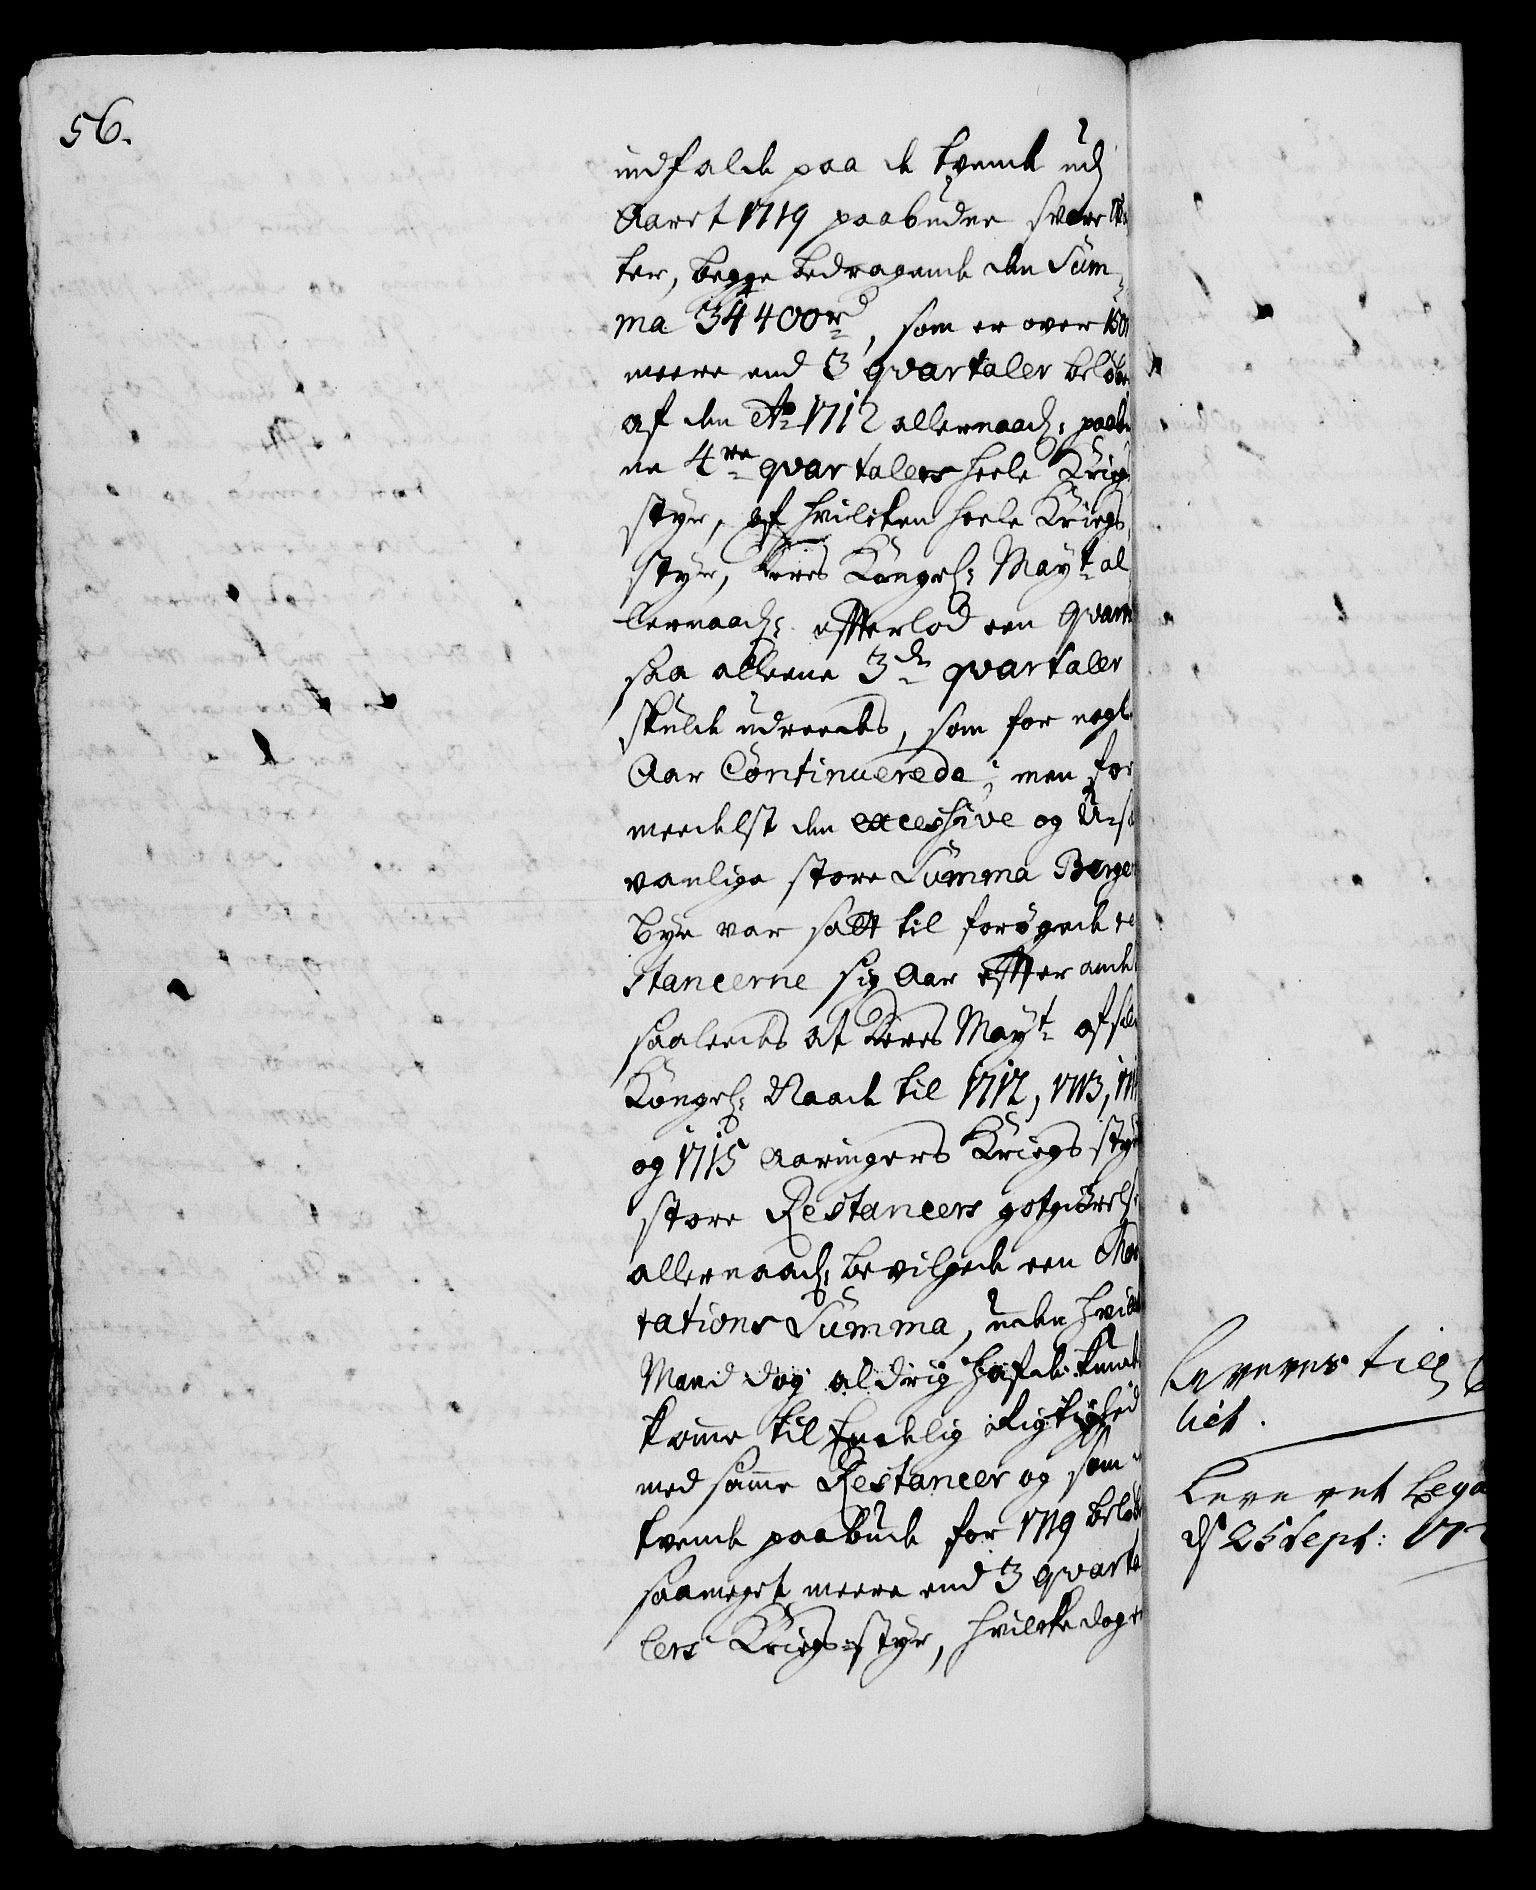 56.
indfalde paa de tvende udj
Aaret 1719 paabudne svære
ter, begge bedragende den Sum-
ma 34400 rd, som er over 150
meere end 3 qvartaler beløbe
af den Ao 1712 allernaad: paabu
ne 4re qvartalers heele Krig
styr, af hvilcken heele Kriegs
styr, Deres Kongel: Mayt al
lernaad: efterlod een qvart
saa alleene 3de qvartaler
skulde udreedes, som for nogle
Aar Continuerede; men for
meedelst den excessive og U-sæ
vanlige store Summa Bergens
bye var satt til forøgede re
stancerne sig Aar efter andet
saaleedes at Deres Mayt af
Kongel: Naade til 1712, 1713, 171
og 1715 Aaringers Kriegs-styr
store Restancers gotgiørelse
allernaad: bevilgede een Mo
rations Summa, uden hvilcket
Mand dog aldrig hafde kundet
komme til Endelig Rigtighed
med samme Restancer og som
tvende paabude for 1719 beløb
saameget meere end 3 qvarta
lers Kriegs-styr, hvilcke dog
Leveres till
het.
Leveret
d 25 Sept: 17